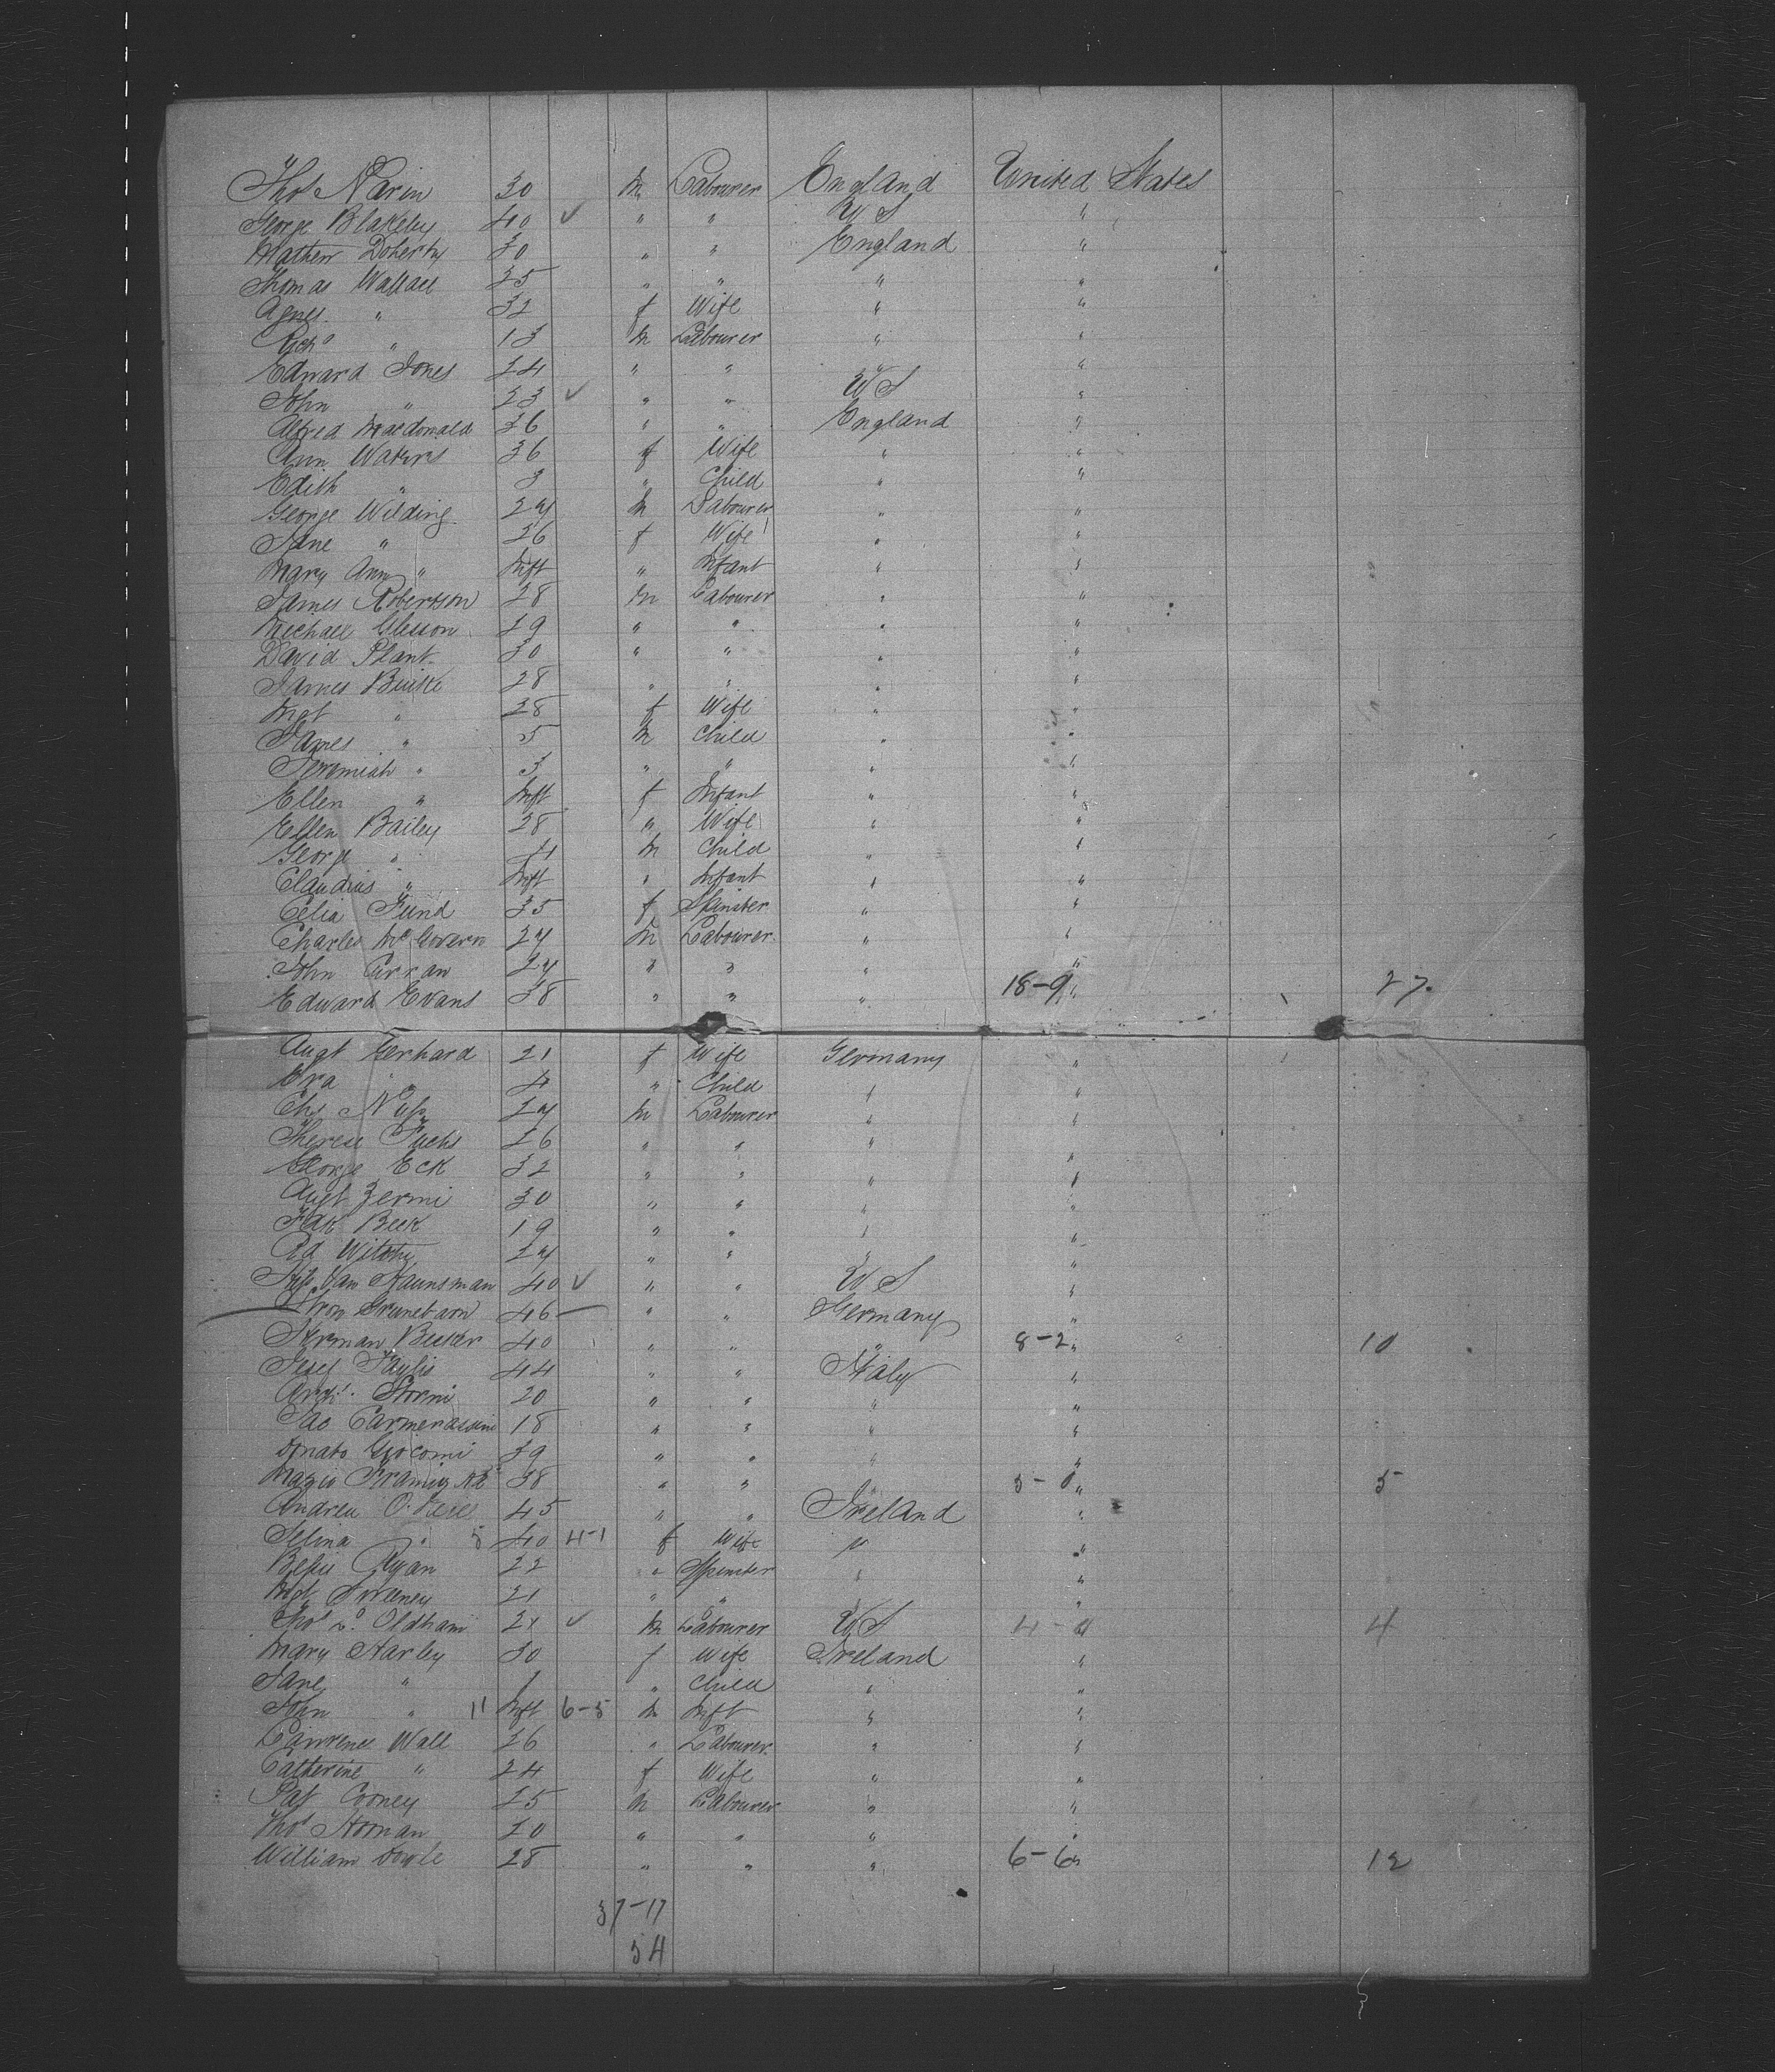 Thos Navin 30 m Labourer England United States
George Blakeley 40 ✓ " " U S "
Mathew Doherty 30 " " England "
Thomas Wallace 25 " " " "
Agnes " 32 f Wife " "
Richd " 13 m Labourer " "
Edward Jones 24 " " " "
John " 23 ✓ " " U S "
Alfred Macdonald 36 " " England "
Ann Waters 36 f Wife " "
Edith " 3 " Child " "
George Wilding 27 m Labourer " "
Jane " 26 f Wife " "
Mary Ann " Inft " Infant " "
James Robertson 28 m Labourer " "
Michael Glesson 29 " " " "
David Plant 30 " " " "
James Burke 28 " " " "
Mgt " 28 f Wife " "
James " 5 m Child " "
Jeremiah " 3 " " " "
Ellen " Inft f Infant " "
Ellen Bailey 28 " Wife " "
George " 4 m Child " "
Claudius " Inft " Infant " "
Celia Fund 35 f Spinster " "
Charles McGovern 27 m Labourer " "
John Curran 27 " " " "
Edward Evans 38 " " " 18-9 " 27
Augt Gerhard 21 f Wife Germany "
Eva " 4 " Child " "
Chs 27 m Labourer " "
Therese Fuchs 26 " " " "
George Eck 32 " " " "
Augt Zermi 30 " " " "
Jak Beck 19 " " " "
Ed 27 " " " "
Van Haunsman 40 ✓ " " U S "
Grunebaum 46 " " Germany "
Herman Becker 40 " " " 8-2 " 10
Josef 44 " " Italy "
Stormi 20 " " " "
18 " " " "
Donato Giocomi 39 " " " "
38 " " " 5-0 " 5
Andrew 45 " " Ireland "
Selina " 5 40 4-1 f Wife " "
Bessie Ryan 22 " Spinster " "
Mgt Sweeney 21 " " " "
Thos Oldham 21 ✓ m Labourer U S 4-0 4
Mary Harley 30 f Wife Ireland "
Jane " " Child " "
John " 11 Inft 6-5 m Inft " "
Lawrence Wall 26 " Labourer " "
Catherine " 24 f Wife " "
Pat Cooney 25 m Labourer " "
Thos Homan 20 " " " "
William Doyle 28 " " " 6-6 " 12
37-17
54